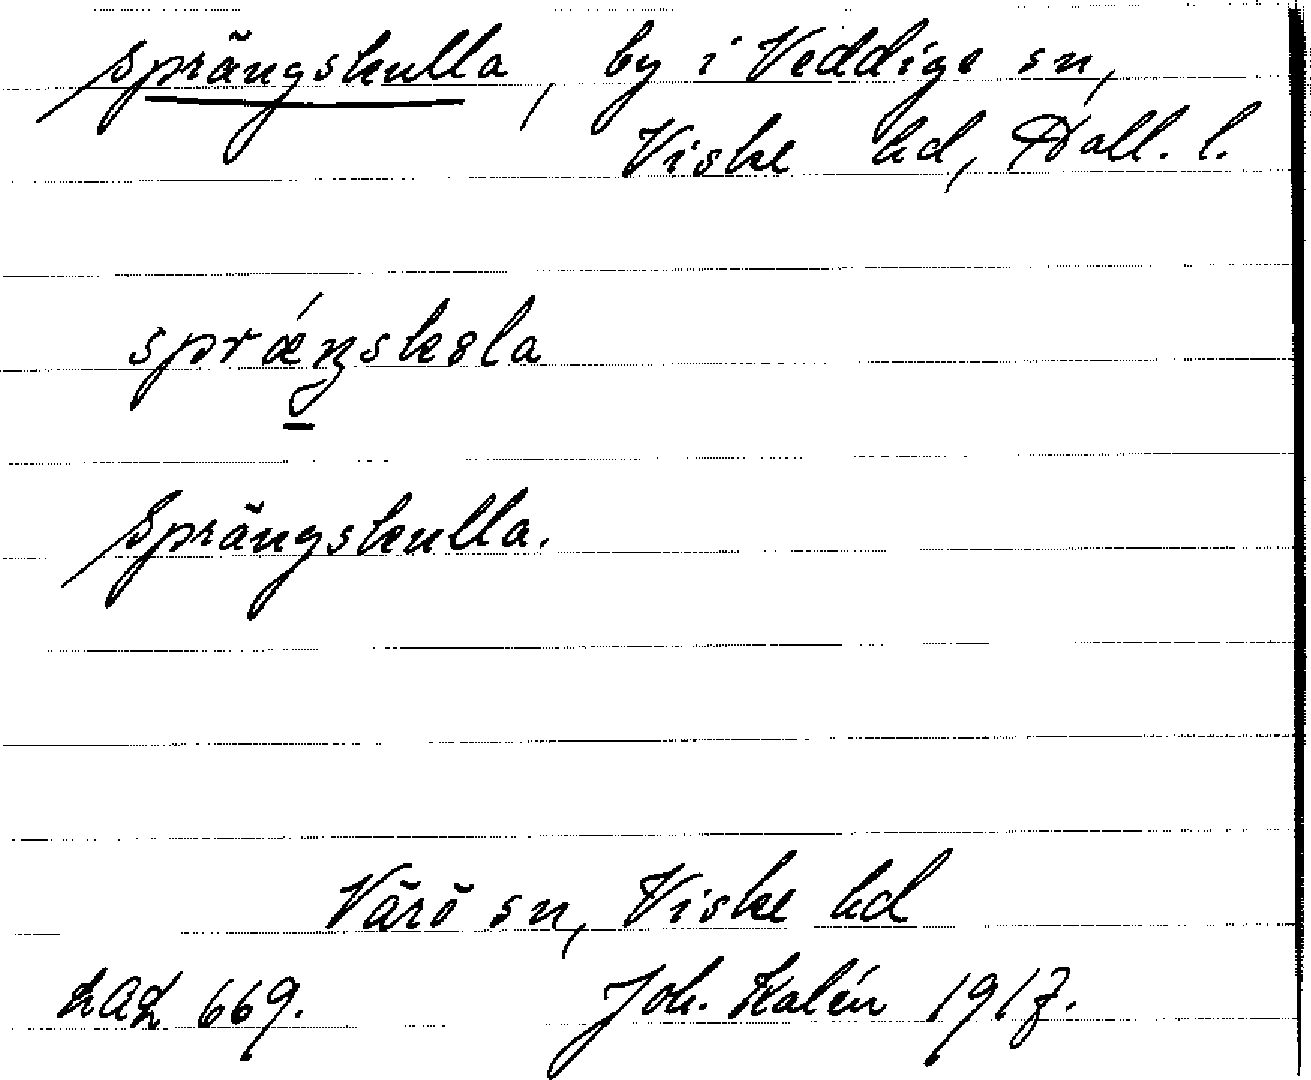 Sprängskulla, by i Veddige sn,
Viske hd, Hall. l.
sprǽŋskɷla
Sprängskulla.
Värö sn, Viske hd
LAL 669. Joh. Kalén 1917.